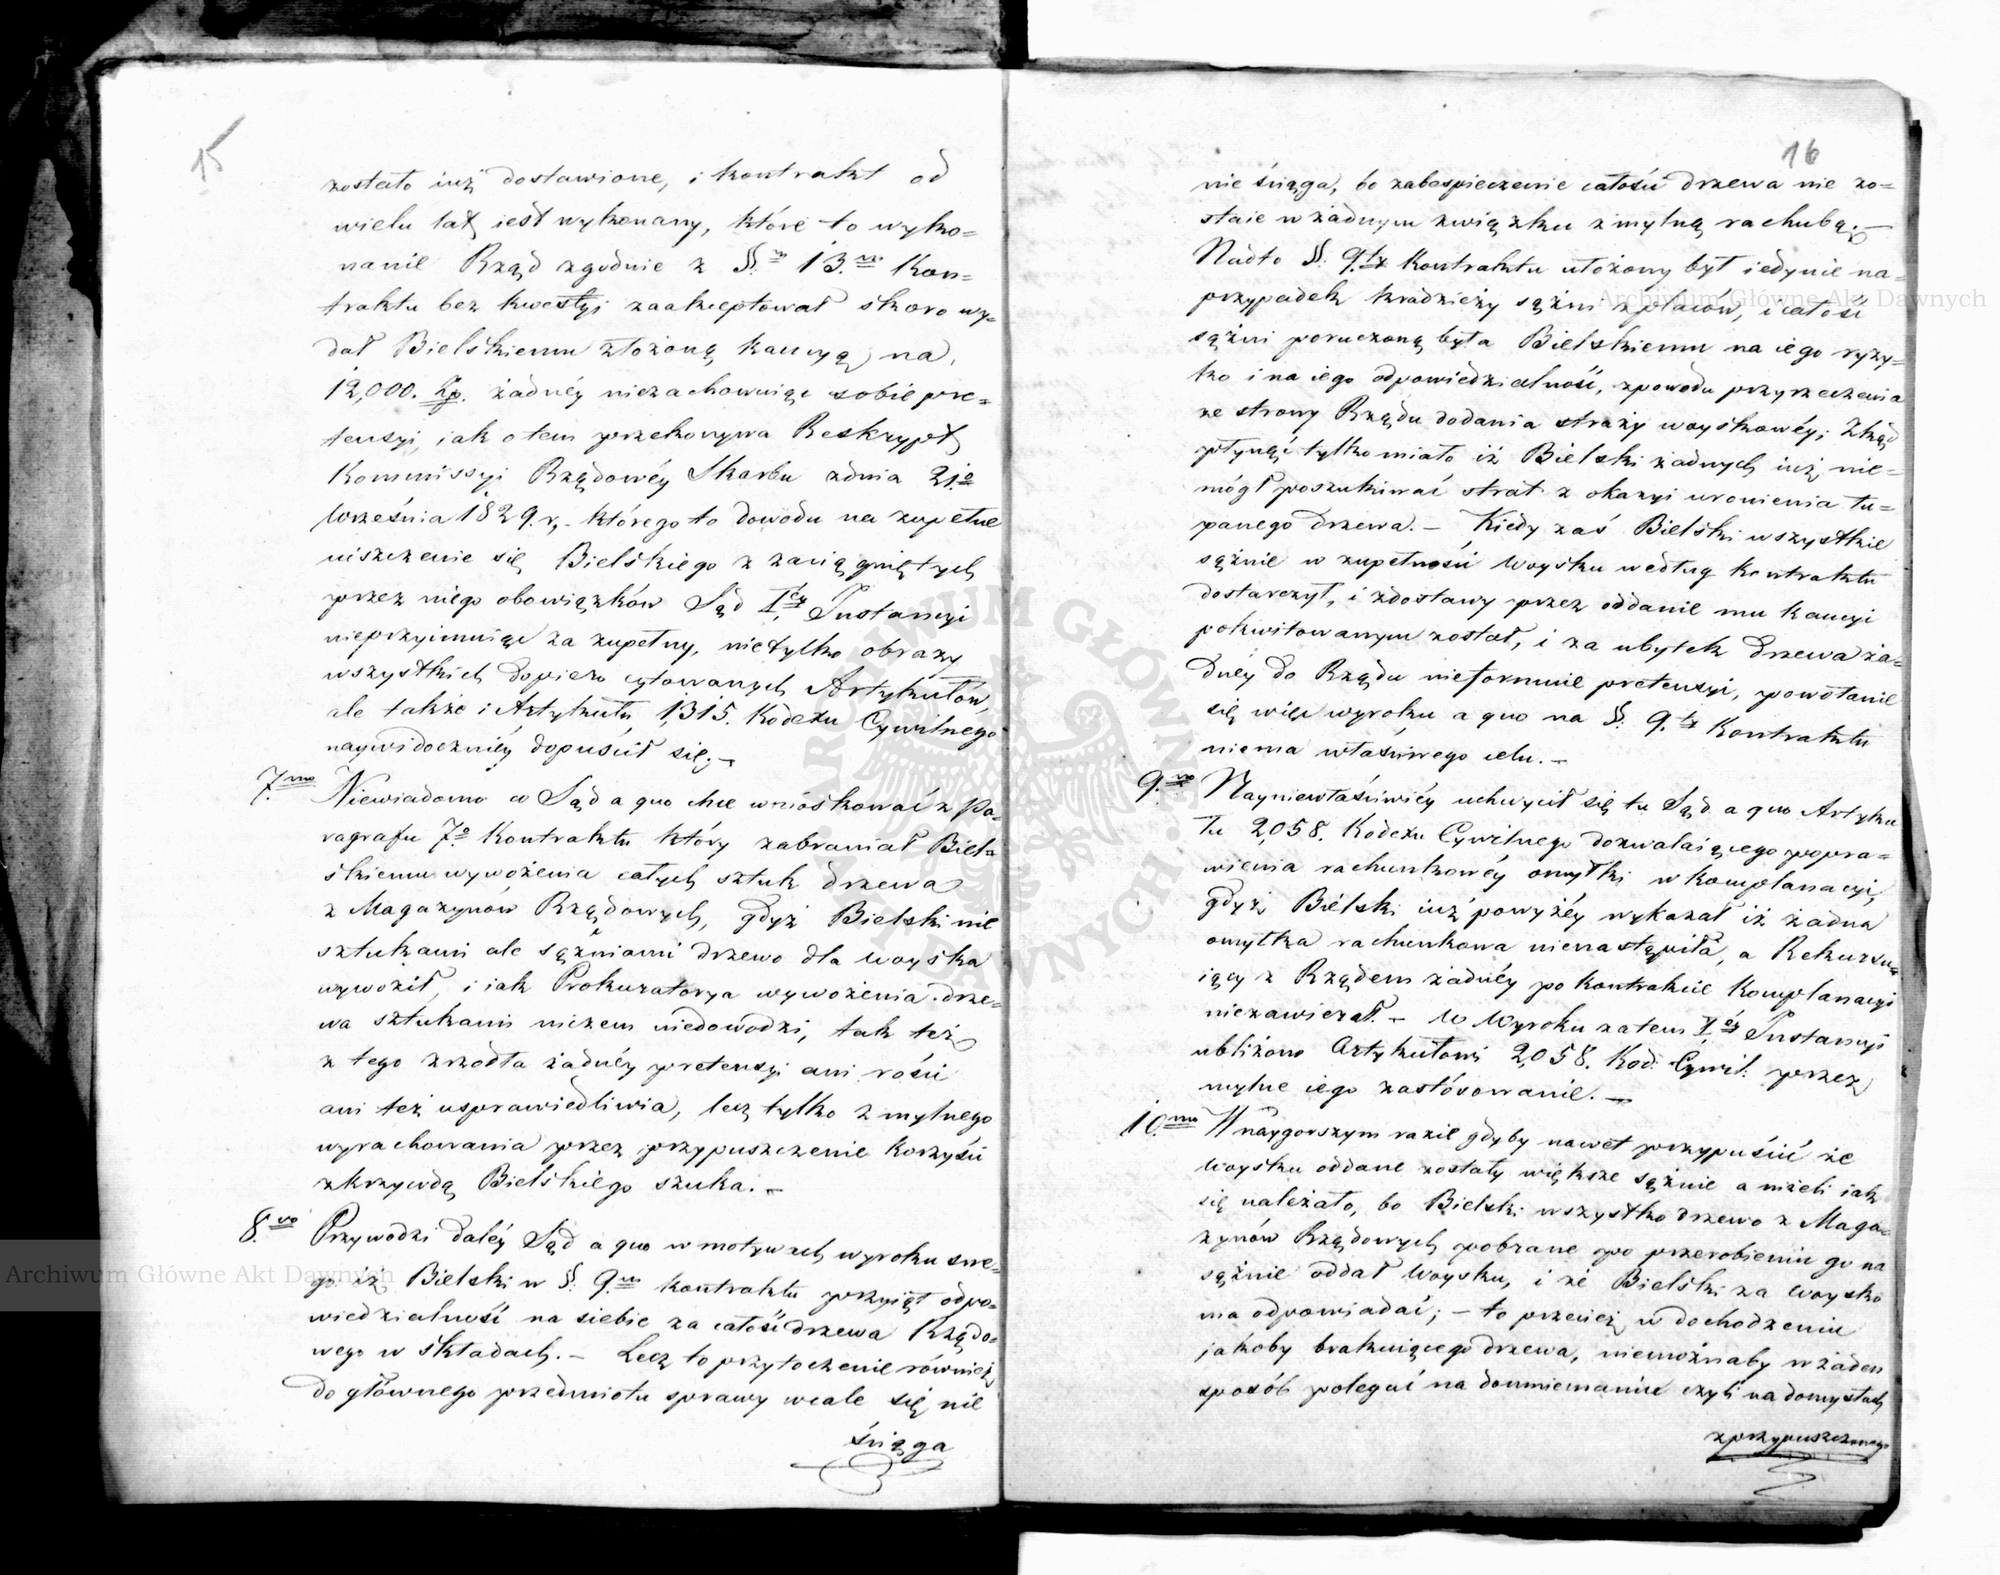 15
zostało iuż dostawione, i kontrakt od
wielu lat iest wykonany, które to wyko=
nanie Rząd zgodnie z §. 13.
Kon=
traktu bez kwestyi zaakceptował skoro wy=
dał Bielskiemu złożoną kaucyą na
12,000. Zp. żadnéy niezachowuiąc sobie pre=
tensyi, iak o tem przekonywa Reskrypt
Kommissyi Rządowéy Skarbu z dnia 21.o
Września 1829. r, którego to dowodu na zupełne
uiszczenie się Bielskiego z zaciągniętych
przez niego obowiązków Sąd I.éy Instancyi
nieprzyimuiąc za zupełny, nietylko obrazy
wszystkich dopiero cytowanych Artykułów,
ale także i Artykułu 1,315. Kodexu Cywilnego
naywidoczniéy dopuścił się. —
7.mo Niewiadomo co Sąd a quo chce wnioskować z Pa=
ragrafu 7.o Kontraktu który zabraniał Biel=
skiemu wywożenia całych sztuk drzewa
z Magazynów Rządowych, gdyż Bielski nie
sztukami ale sążniami drzewo dla woyska
wywoził, i iak Prokuratorya wywożenia drze=
wa sztukami niczem niedowodzi, tak też
z tego zrzódła żadnéy pretensyi ani rości
ani też usprawiedliwia, lecz tylko z mylnego
wyrachowania przez przypuszczenie korzyści
z krzywdą Bielskiego szuka. —
8.vo Przywodzi daléy Sąd a quo w motywach wyroku swe=
go iż Bielski w §. 9.m kontraktu przyiął odpo=
wiedzialność na siebie za całość drzewa Rządo=
wego w składach. — Lecz to przytoczenie również
do głównego przedmiotu sprawy wcale się nie
ściąga
16
nie ściąga, bo zabezpieczenie całości drzewa nie zo=
staie w żadnym związku z mylną rachubą. —
Nadto §. 9.ty Kontraktu ułożony był iedynie na=
przypadek kradzieży sążni z placów, i całość
sążni poruczoną była Bielskiemu na iego ryzy=
ko i na iego odpowiedzialność, z powodu przyrzeczenia
ze strony Rządu dodania straży woyskowéy; zkąd
płynąć tylko miało iż Bielski żadnych iuż nie=
mógł poszukiwać strat z okazyi uronienia łu=
panego drzewa. — Kiedy zaś Bielski wszystkie
sążnie w zupełności Woysku według kontraktu
dostarczył, i z dostawy przez oddanie mu Kaucyi
pokwitowanym został, i za ubytek drzewa ża=
dnéy do Rządu nieformuie pretensyi, powołanie
się więc wyroku a quo na §. 9.ty Kontraktu
niema właściwego celu. —
9.no Nayniewłaściwiéy uchwycił się tu Sąd a quo Artyku
łu 2,058. Kodexu Cywilnego dozwalaiącego popra=
wienia rachunkowéy omyłki w Komplanacyi,
gdyż Bielski iuż powyżéy wykazał iż żadna
omyłka rachunkowa nienastąpiła, a Rekursu=
iący z Rządem żadnéy po kontrakcie Komplanacyi
niezawierał. — W Wyroku zatem I.éy Instancyi
ubliżono Artykułowi 2,058. Kod: Cywil: przez
mylne iego zastósowanie. —
10.mo W naygorszym razie gdyby nawet przypuścić że
Woysku oddane zostały większe sążnie a niżeli iak
się należało, bo Bielski wszystko drzewo z Maga=
zynów Rządowych pobrane po przerobieniu go na
sążnie oddał Woysku, i że Bielski za woysko
ma odpowiadać; — to przecież w dochodzeniu
jakoby brakuiącego drzewa, niemożnaby w żaden
sposób polegać na domniemaniu czyli na domysłach
z przypuszczonego
Archiwum Główne Akt Dawnych
Archiwum Główne Akt Dawnych
ARCHIWUM GŁÓWNE AKT DAWNYCH